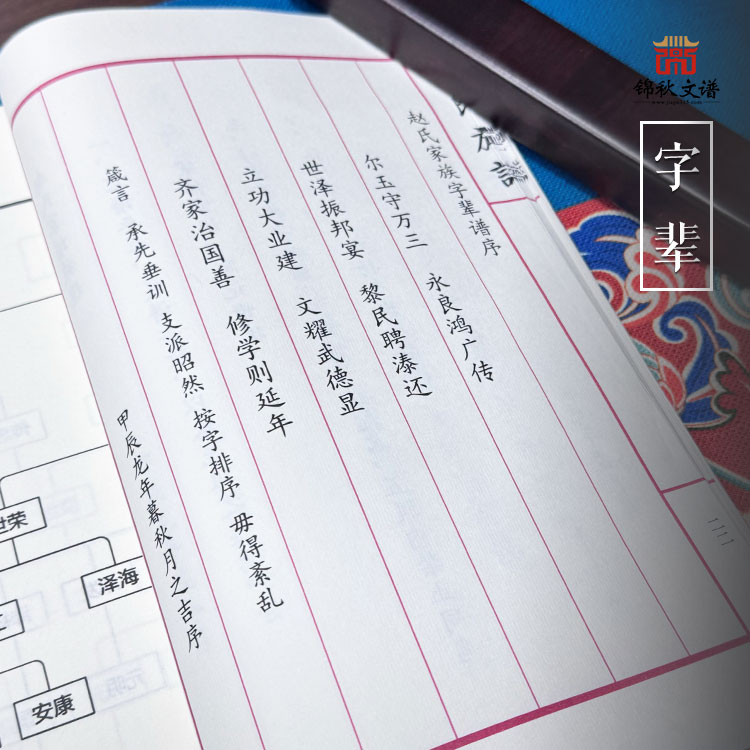 锦秋文谱
字辈
赵氏家族字辈谱序
尔玉守万三 永良鸿广传
世泽振邦宴 黎民聘溱还
立功大业建 文耀武德显
齐家治国善 修学则延年
箴言 承先垂训 支派昭然 按字排序 毋得紊乱
甲辰龙年暮秋月之吉序
世荣
泽海
安康